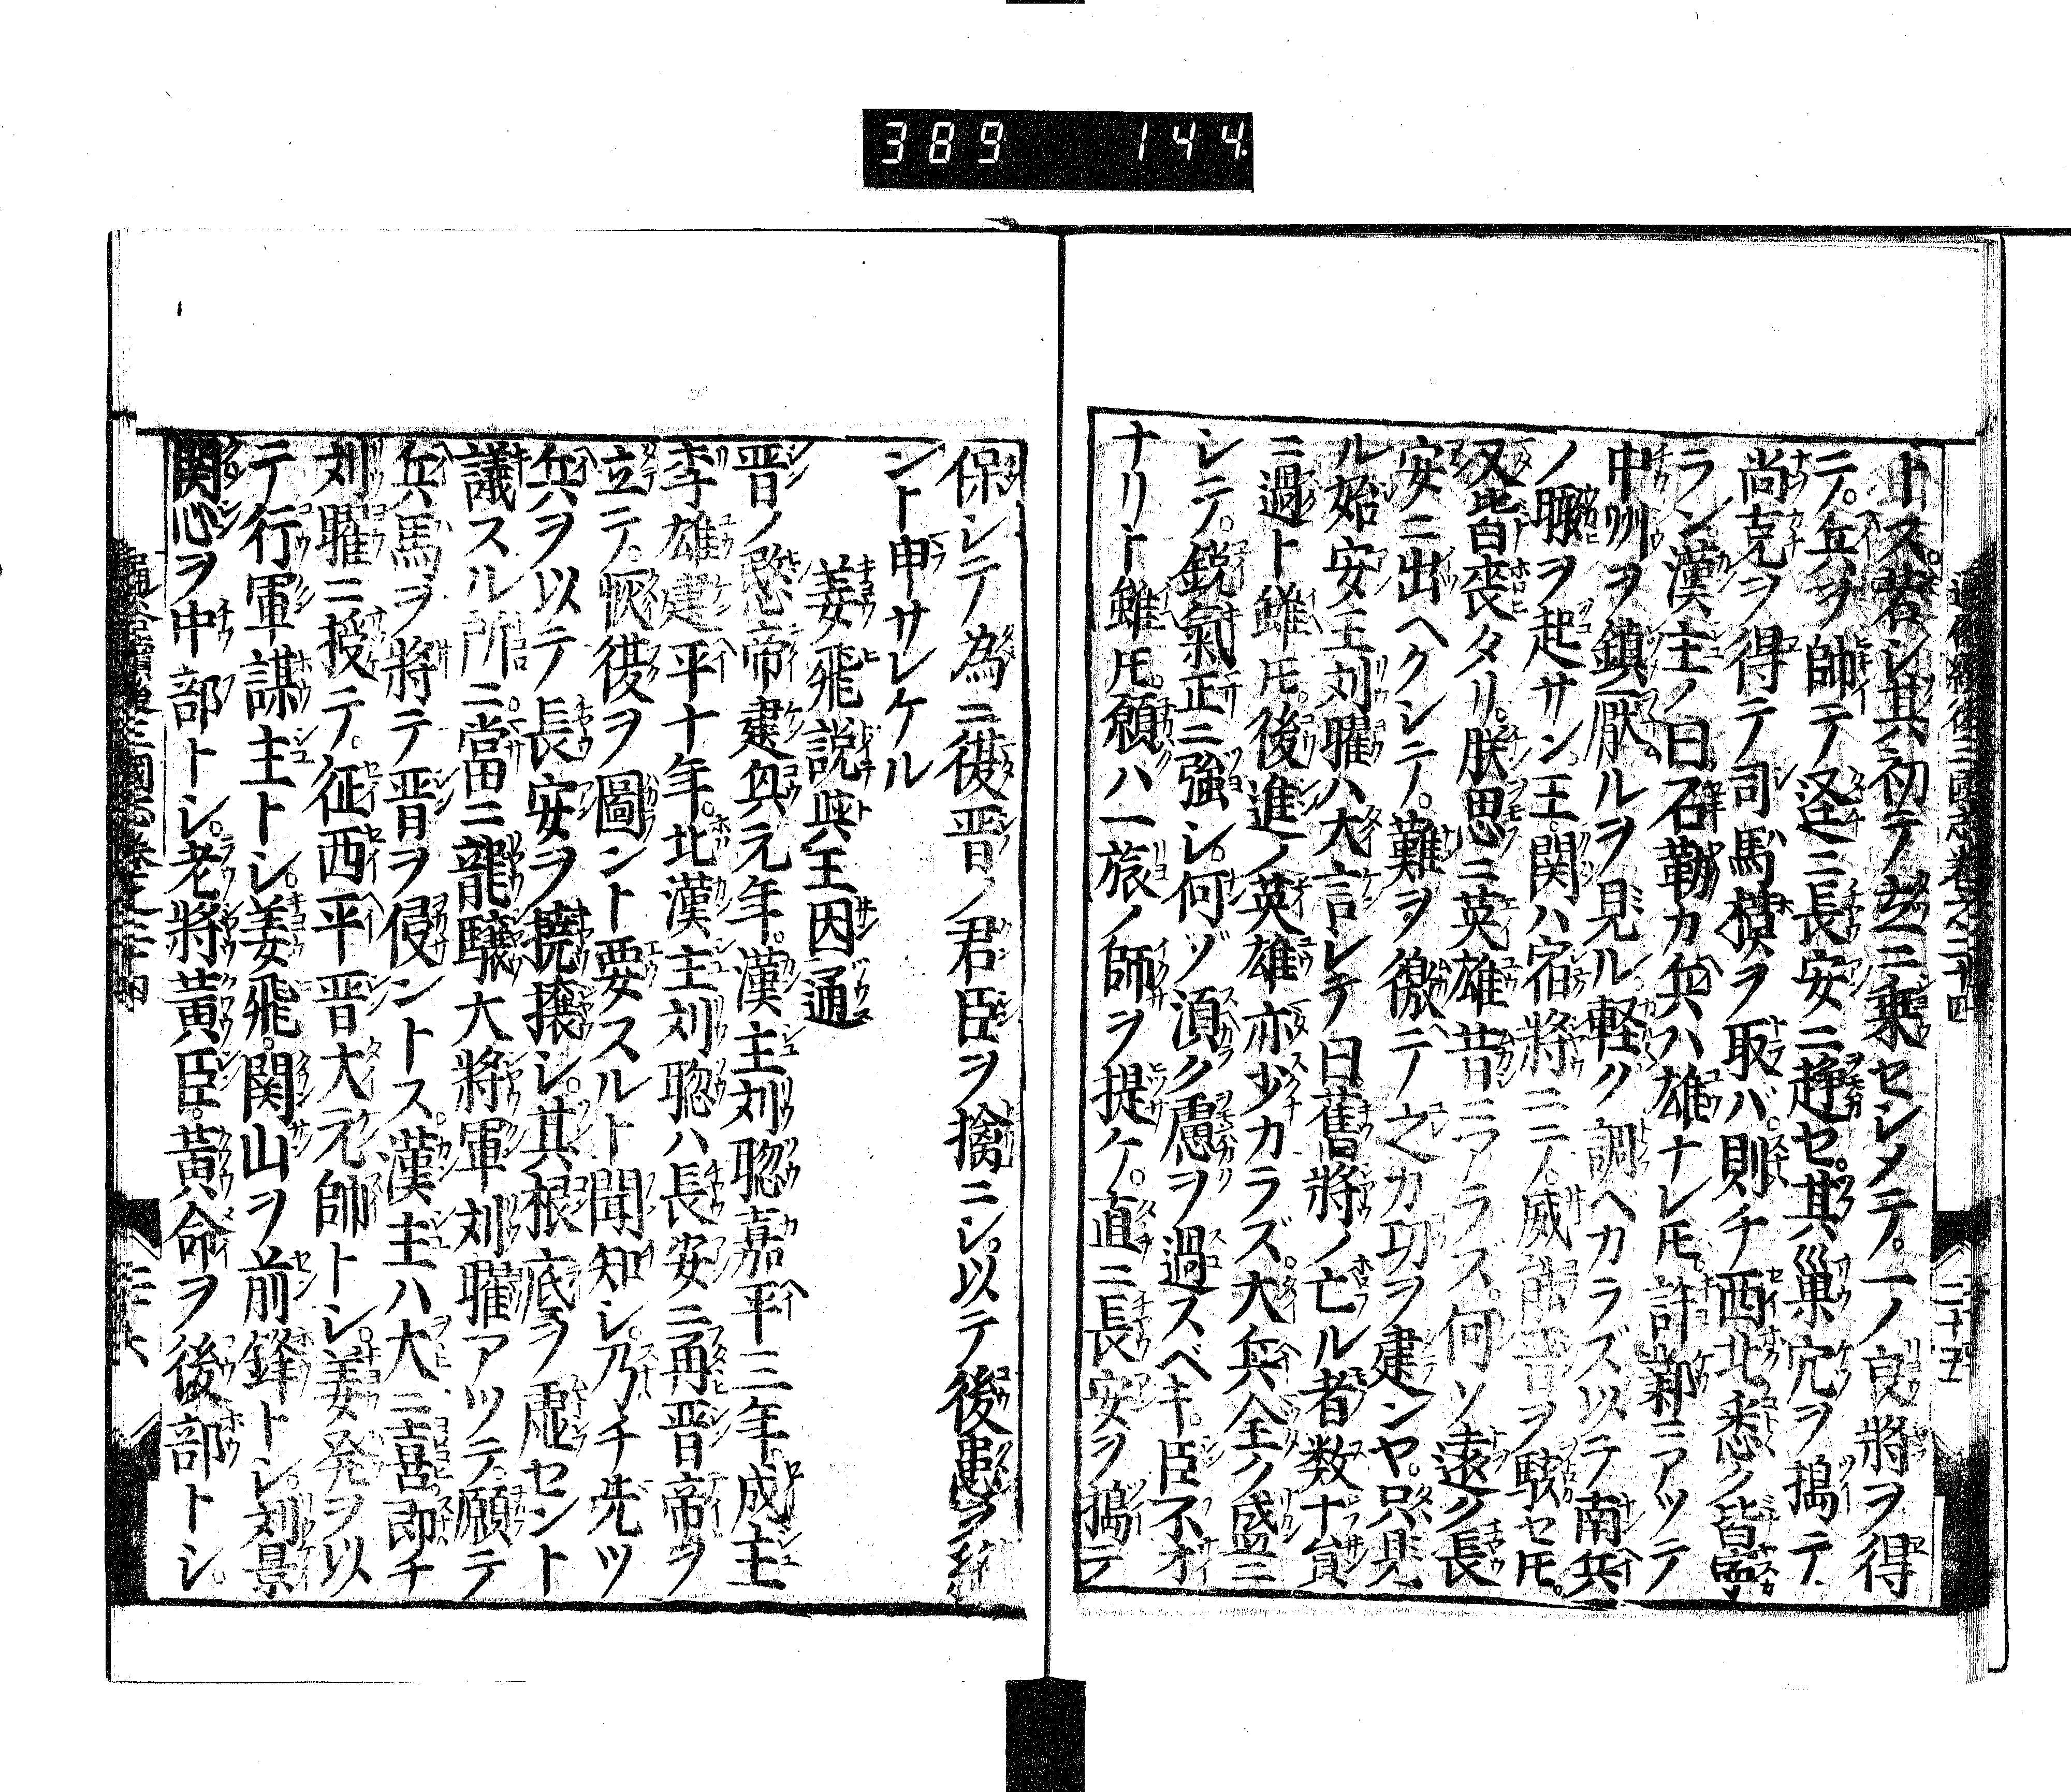 389 144
トス。若シ其初テ立ニ乗センメテ。一ノ良將ヲ得
テ。兵ヲ帥テ径ニ長安ニ趨セ。其巣穴ヲ搗テ
尚克ヲ得テ司馬模ヲ取バ。則チ西北悉ク皆寧
ラン漢主ノ曰石勒カ兵ハ雄ナレ𪜈。許鄴ニアツテ
中州ヲ鎮厭ルヲ見ル軽ク調ベカラズ以テ南兵
ノ聭ヲ起サン王関ハ宿將ニテ。威能晋ヲ駭セ𪜈。
又皆喪タリ。朕思ニ英雄昔ニアラス。何ソ遠ク長
安ニ出ヘクシテ。難ヲ徼テ之カ功ヲ建ンヤ。只見
ル始安王刘曜ハ大言レテ曰舊將ノ亡ル者数十員
ニ過ト雖𪜈。後進ノ英雄亦少カラズ。大兵全ク盛ニ
シテ。鋭氣正ニ強シ。何ゾ湏ク慮ヲ過スベキ。臣不才
ナリト雖𪜈。願ハ一旅ノ師ヲ提ケ。直ニ長安ヲ搗テ
二十五
保シテ為ニ後晋ノ君臣ヲ擒ニシ。以テ後患ヲ絶
ント申サレケル
姜飛説與王因通
晋ノ愍帝建興元年。漢主刘聡嘉平三年。成主
李雄建平十年。北漢主刘聡ハ長安ニ再晋帝ヲ
立テ。恢復ヲ圖ント要スルト聞知シ。乃チ先ツ
兵ヲ以テ長安ヲ撓擾シ。其根底ヲ虚セント
議スル所ニ。當ニ龍驤大將軍刘曜アツテ。願テ
兵馬ヲ將テ晋ヲ侵ントス。漢主ハ大ニ喜即チ
刘曜ニ授テ。征西平晋大元帥トシ。姜発ヲ以
テ行軍謀主トシ。姜飛。関山ヲ前鋒トシ。刘景
関心ヲ中部トシ。老將黃臣。黃命ヲ後部トシ。